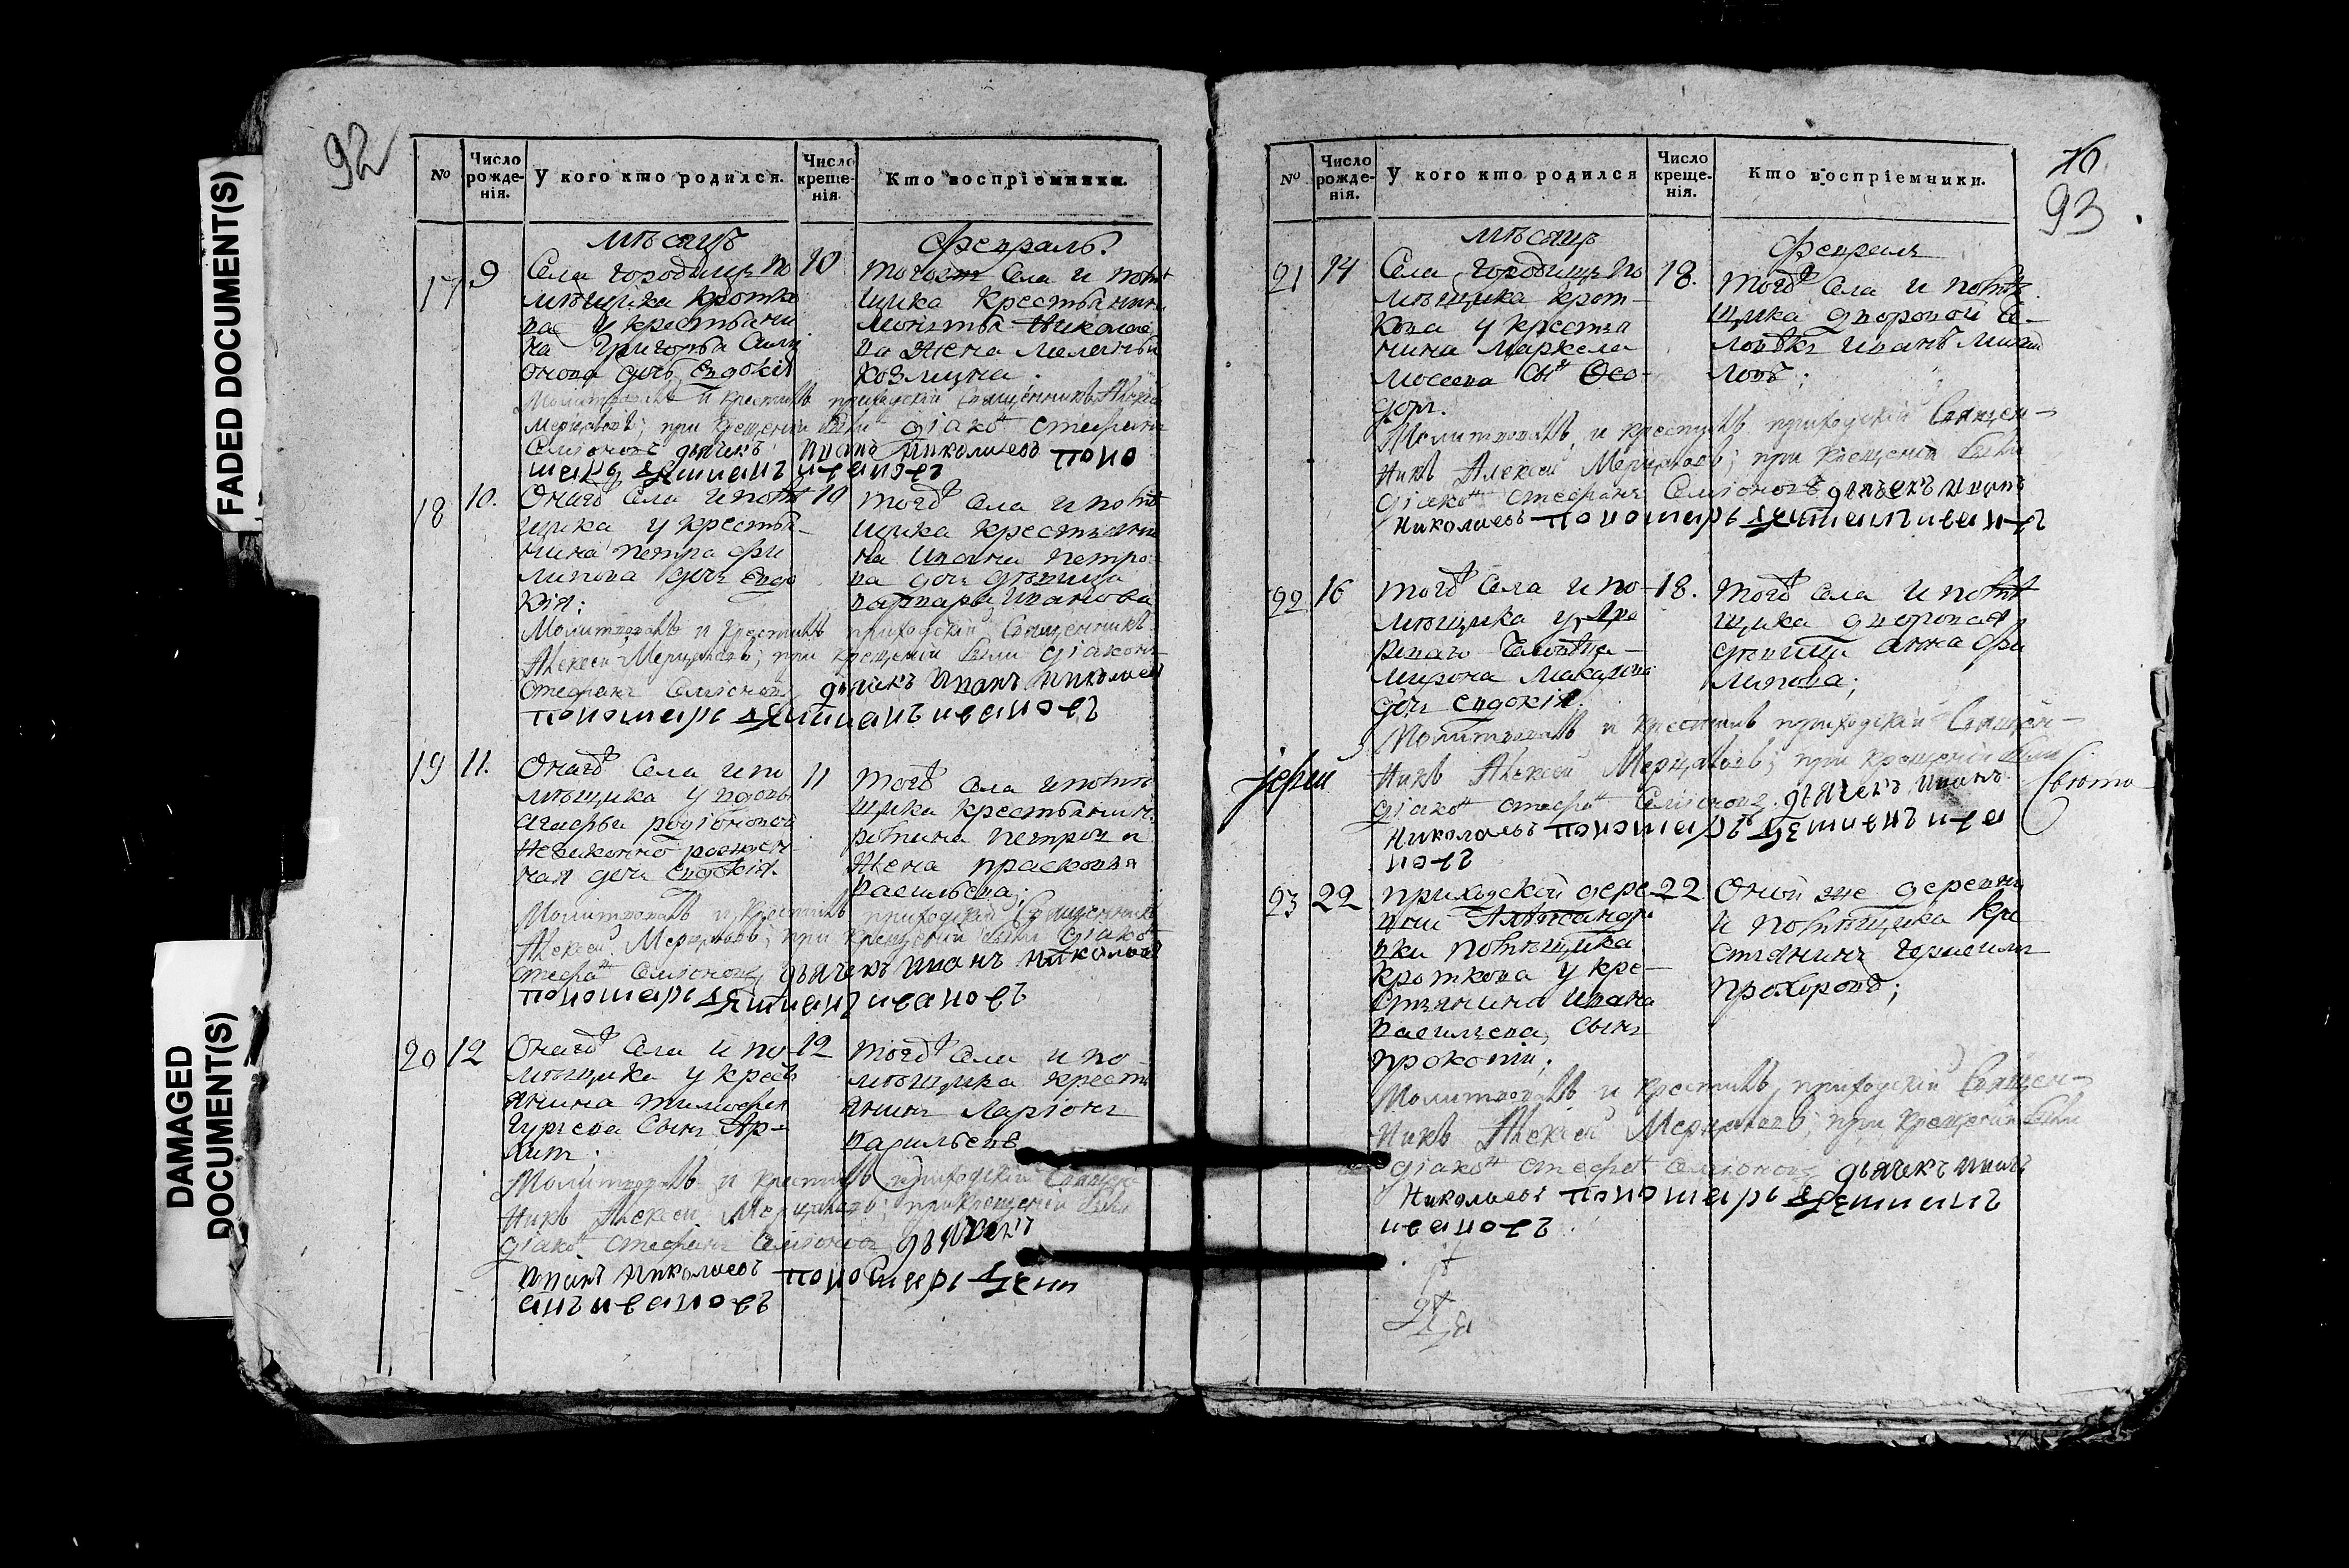 FADED DOCUMENT(S)
DAMAGED
DOCUMENT(S)
92
№
Число рожде-нія.
У кого кто родился.
Число креще-нія.
Кто воспріемники.
мѣсяцъ
февраль.
17 9 10
Села городищъ по
мѣщика Кротко
ва у крестьяни
на Григорья Сими
онова дочь Евдокія
тогожъ Села и помѣ
щика Крестьянина
Николае
ва жена Меланья
Козмина.
Молитвовалъ и крестилъ приходскій Священникъ Алексѣй
Мерцаловъ; при крещеніи были діаконъ Стефанъ
Симіоновъ дьячекъ Иванъ Николаевъ поно
марь Иванов
18 10. 10
Онагожъ Села и помѣ
щика у крестья-
нина Петра Фи
липова дочь Евдо
кія;
тогожъ Села и помѣ
щика крестьяни
на Ивана Петро
ва дочь дѣвица
варвара Иванова
Молитвовалъ и крестилъ приходскій Священникъ
Алексей Мерцаловъ; при крещеніи были діаконъ
Стефанъ Симіоновъ дьячекъ Иванъ Николаев
пономарь Ивановъ
19 11. 11
Онагожъ Села и по
мѣщика у вдовы
Агафьи родіоновой
незаконно рожден-
ная дочь Евдокія.
тогожъ Села и помѣ
щика Крестьянин.
Петров и
жена прасковья
васильева;
Молитвовалъ и крестилъ приходскій Священникъ
Алексей Мерцаловъ; при крещеніи были діакон
Стефан Симіоновъ дьячекъ Иванъ Николаев
пономарь Ивановъ
20 12 12
Онагожъ Села и по-
мѣщика у крест
янина Тимофея
Гурьева Сынъ Ар-
хип.
тогожъ Села и по-
мѣщика крестья
янинъ Ларіонъ
васильевъ
Молитвовалъ и крестилъ приходскій Священ-
никъ Алексей Мерцаловъ; при крещеніи были
діакон Стефанъ Симіонов дьячекъ
Иванъ Николаевъ пономарь
Ивановъ
93
№
Число рожде-нія.
У кого кто родился
Число креще-нія.
Кто воспріемники.
мѣсяцъ
февраль
21 14 18.
Села городищъ по
мѣщика Крот-
кова у крестья
нина Маркела
Мосеева сын Фео-
доръ.
тогожъ Села и помѣ
щика дворовой че-
ловѣкъ Иванъ Михай
ловъ;
Молитвовалъ и крестилъ приходскій Священ-
никъ Алексей Мерцаловъ; при крещеніи были
діакон Стефанъ Симіоновъ дьячекъ Иванъ
Николаевъ пономарь Ивановъ
22 16 18.
тогожъ Села и по-
мѣщика у дво
роваго Человѣка
Мирона Макарова
дочь Евдокія.
тогожъ Села и помѣ
щика дворовая
дѣвица анна Фи
липова;
Молитвовалъ и крестилъ приходскій Священ-
никъ Алексей Мерцаловъ; при крещеніи были
діакон Стефан Симіоновъ дьячекъ Иванъ
Николаевъ пономарь Ива
новъ
іерей
23 22 22
приходской дере
вни Александро
вки помѣщика
Кроткова у кре-
стьянина Ивана
васильева, Сынъ
прокопій;
Оной же деревни
и помѣщика кре
стьянинъ
Прохоровъ;
Молитвовалъ и крестилъ приходскій Священ-
никъ Алексей Мерцаловъ; при крещеніи были
діакон Стефан Симіоновъ дьячекъ Иванъ
Николаевъ пономарь
Ивановъ